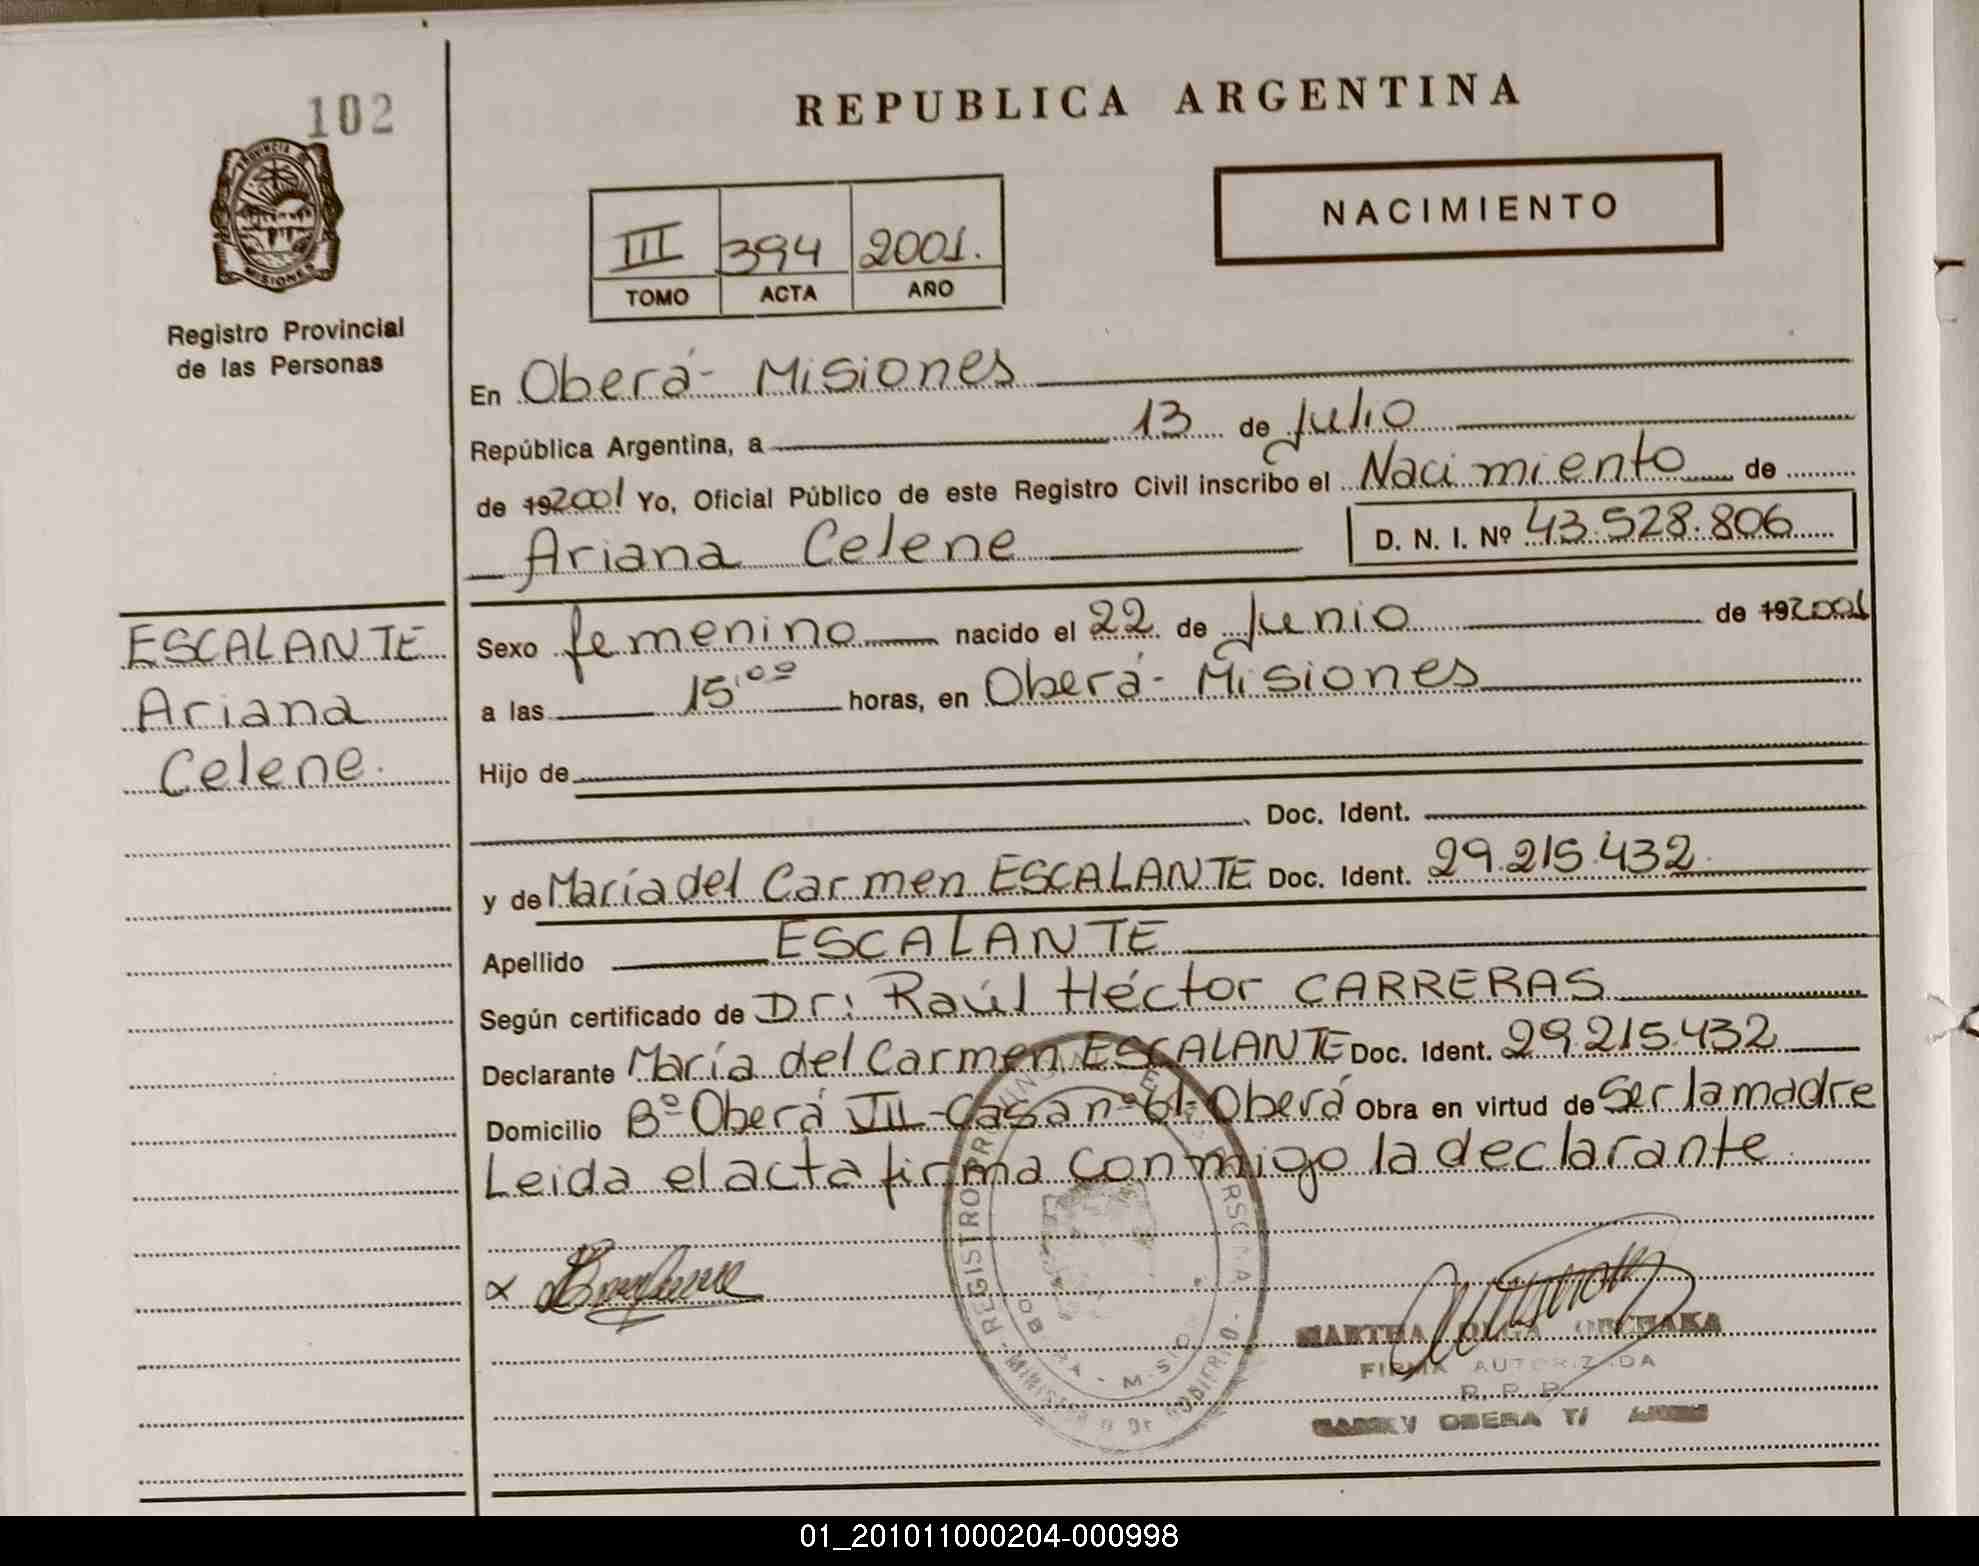 102
PROVINCIA DE
MISIONES
Registro Provincial
de las Personas
ESCALANTE
Ariana
Celene.
REPUBLICA ARGENTINA
NACIMIENTO
III 394 2001.
TOMO ACTA AÑO
En Oberá - Misiones
República Argentina, a 13 de Julio
de 192001 Yo, Oficial Público de este Registro Civil inscribo el Nacimiento de
Ariana Celene D. N. I. Nº 43.528.806
Sexo femenino nacido el 22 de Junio de 192001
a las 15,00 horas, en Oberá - Misiones
Hijo de
Doc. Ident.
y de María del Carmen ESCALANTE Doc. Ident. 29.215.432
Apellido ESCALANTE
Según certificado de Dr: Raúl Héctor CARRERAS
Declarante María del Carmen ESCALANTE Doc. Ident. 29.215.432
Domicilio Bº Oberá VII - Casa nº 61 - Oberá Obra en virtud de Ser la madre
Leida el acta firma conmigo la declarante.
REGISTRO
MINISTERIO DE GOBIERNO
MARTHA OLGA
FIRMA AUTORIZADA
R. P. P.
OBERA
01_201011000204-000998